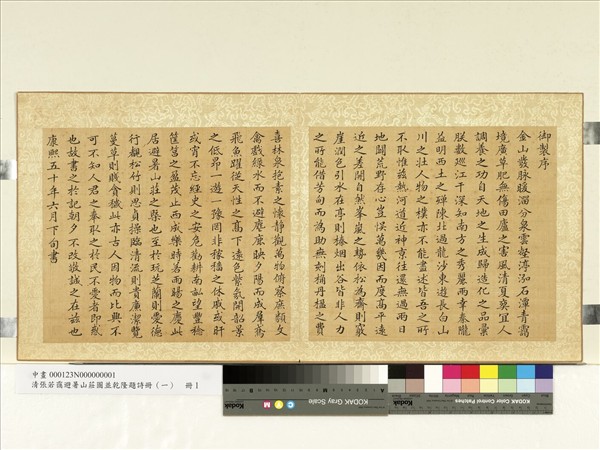 御製序
金山發脉暖溜分泉雲壑渟泓石潭青靄
境廣草肥無傷田廬之害風清夏爽宜人
調養之功自天地之生成歸造化之品彙
朕數巡江干深知南方之秀麗兩幸秦隴
益明西土之殫陳北過龍沙東遊長白山
川之壯人物之樸亦不能盡述皆吾之所
不取惟茲熱河道近神京往還無過兩日
地闢荒野存心豈悞萬幾因而度高平遠
近之差開自然峯嵐之勢依松為齋則竅
崖潤色引水在亭則榛烟出谷皆非人力
之所能借芳甸而為助無刻桷丹楹之費
喜林泉抱素之懷靜觀萬物俯察庶類文
禽戲綠水而不避麀鹿映夕陽而成羣鳶
飛魚躍從天性之高下遠色紫氛開韶景
之低昂一遊一豫罔非稼穡之休戚或旰
或宵不忘經史之安危勸耕南畝望豐稔
筐筥之盈茂止西成樂時若雨暘之慶此
居避暑山莊之槩也至於玩芝蘭則愛德
行覩松竹則思貞操臨清流則貴廉潔覽
蔓草則賤貪穢此亦古人因物而比興不
可不知人君之奉取之於民不愛者即惑
也故書之於記朝夕不改敬誠之在茲也
康熙五十年六月下旬書
中畫 000123N00000001
清張若靄避暑山莊圖並乾隆題詩冊（一） 冊1
Kodak
KODAK Gray Scale
KODAK Color Control Patches